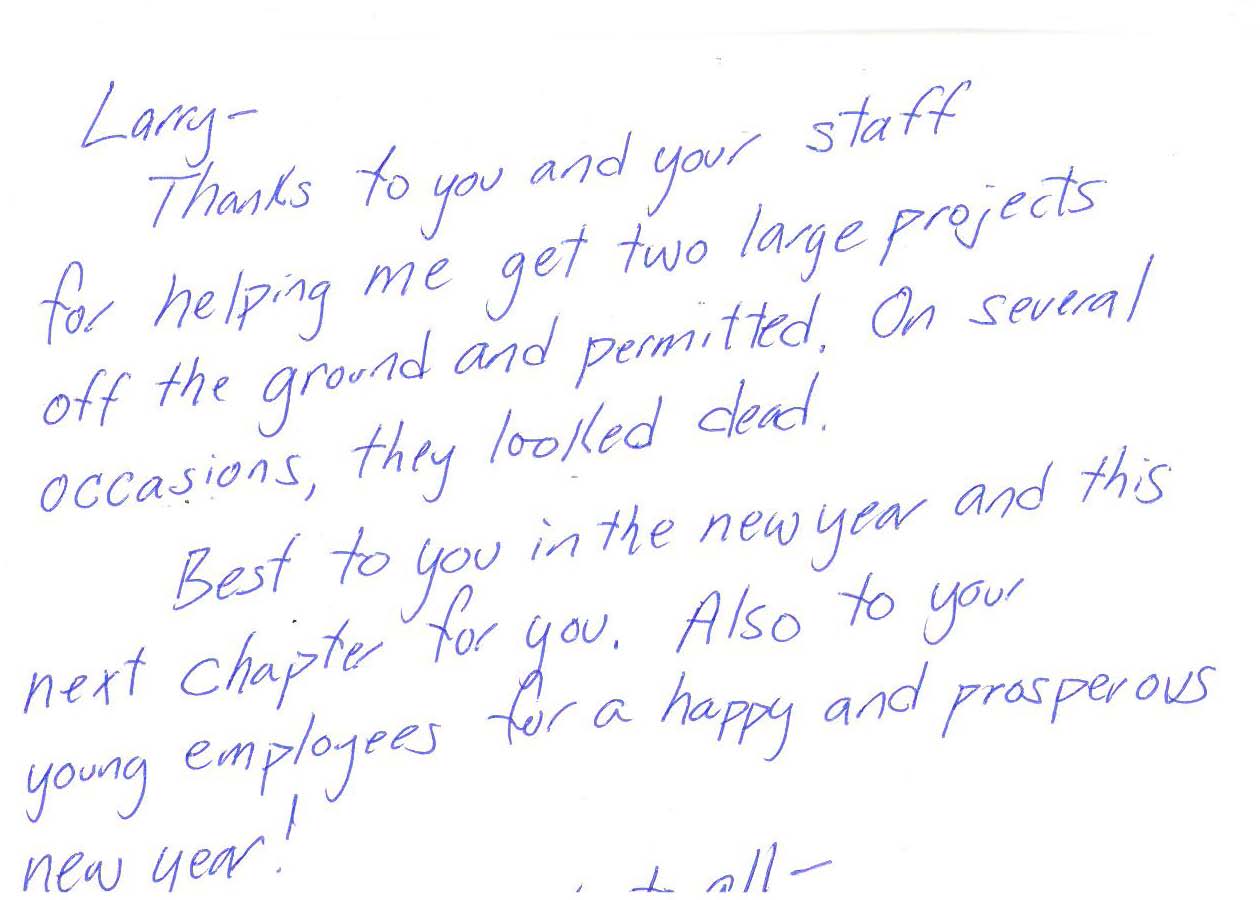 Larry-
Thanks to you and your staff
for helping me get two large projects
off the ground and permitted. On several
occasions, they looked dead.
Best to you in the new year and this
next chapter for you. Also to your
young employees for a happy and prosperous
new year!